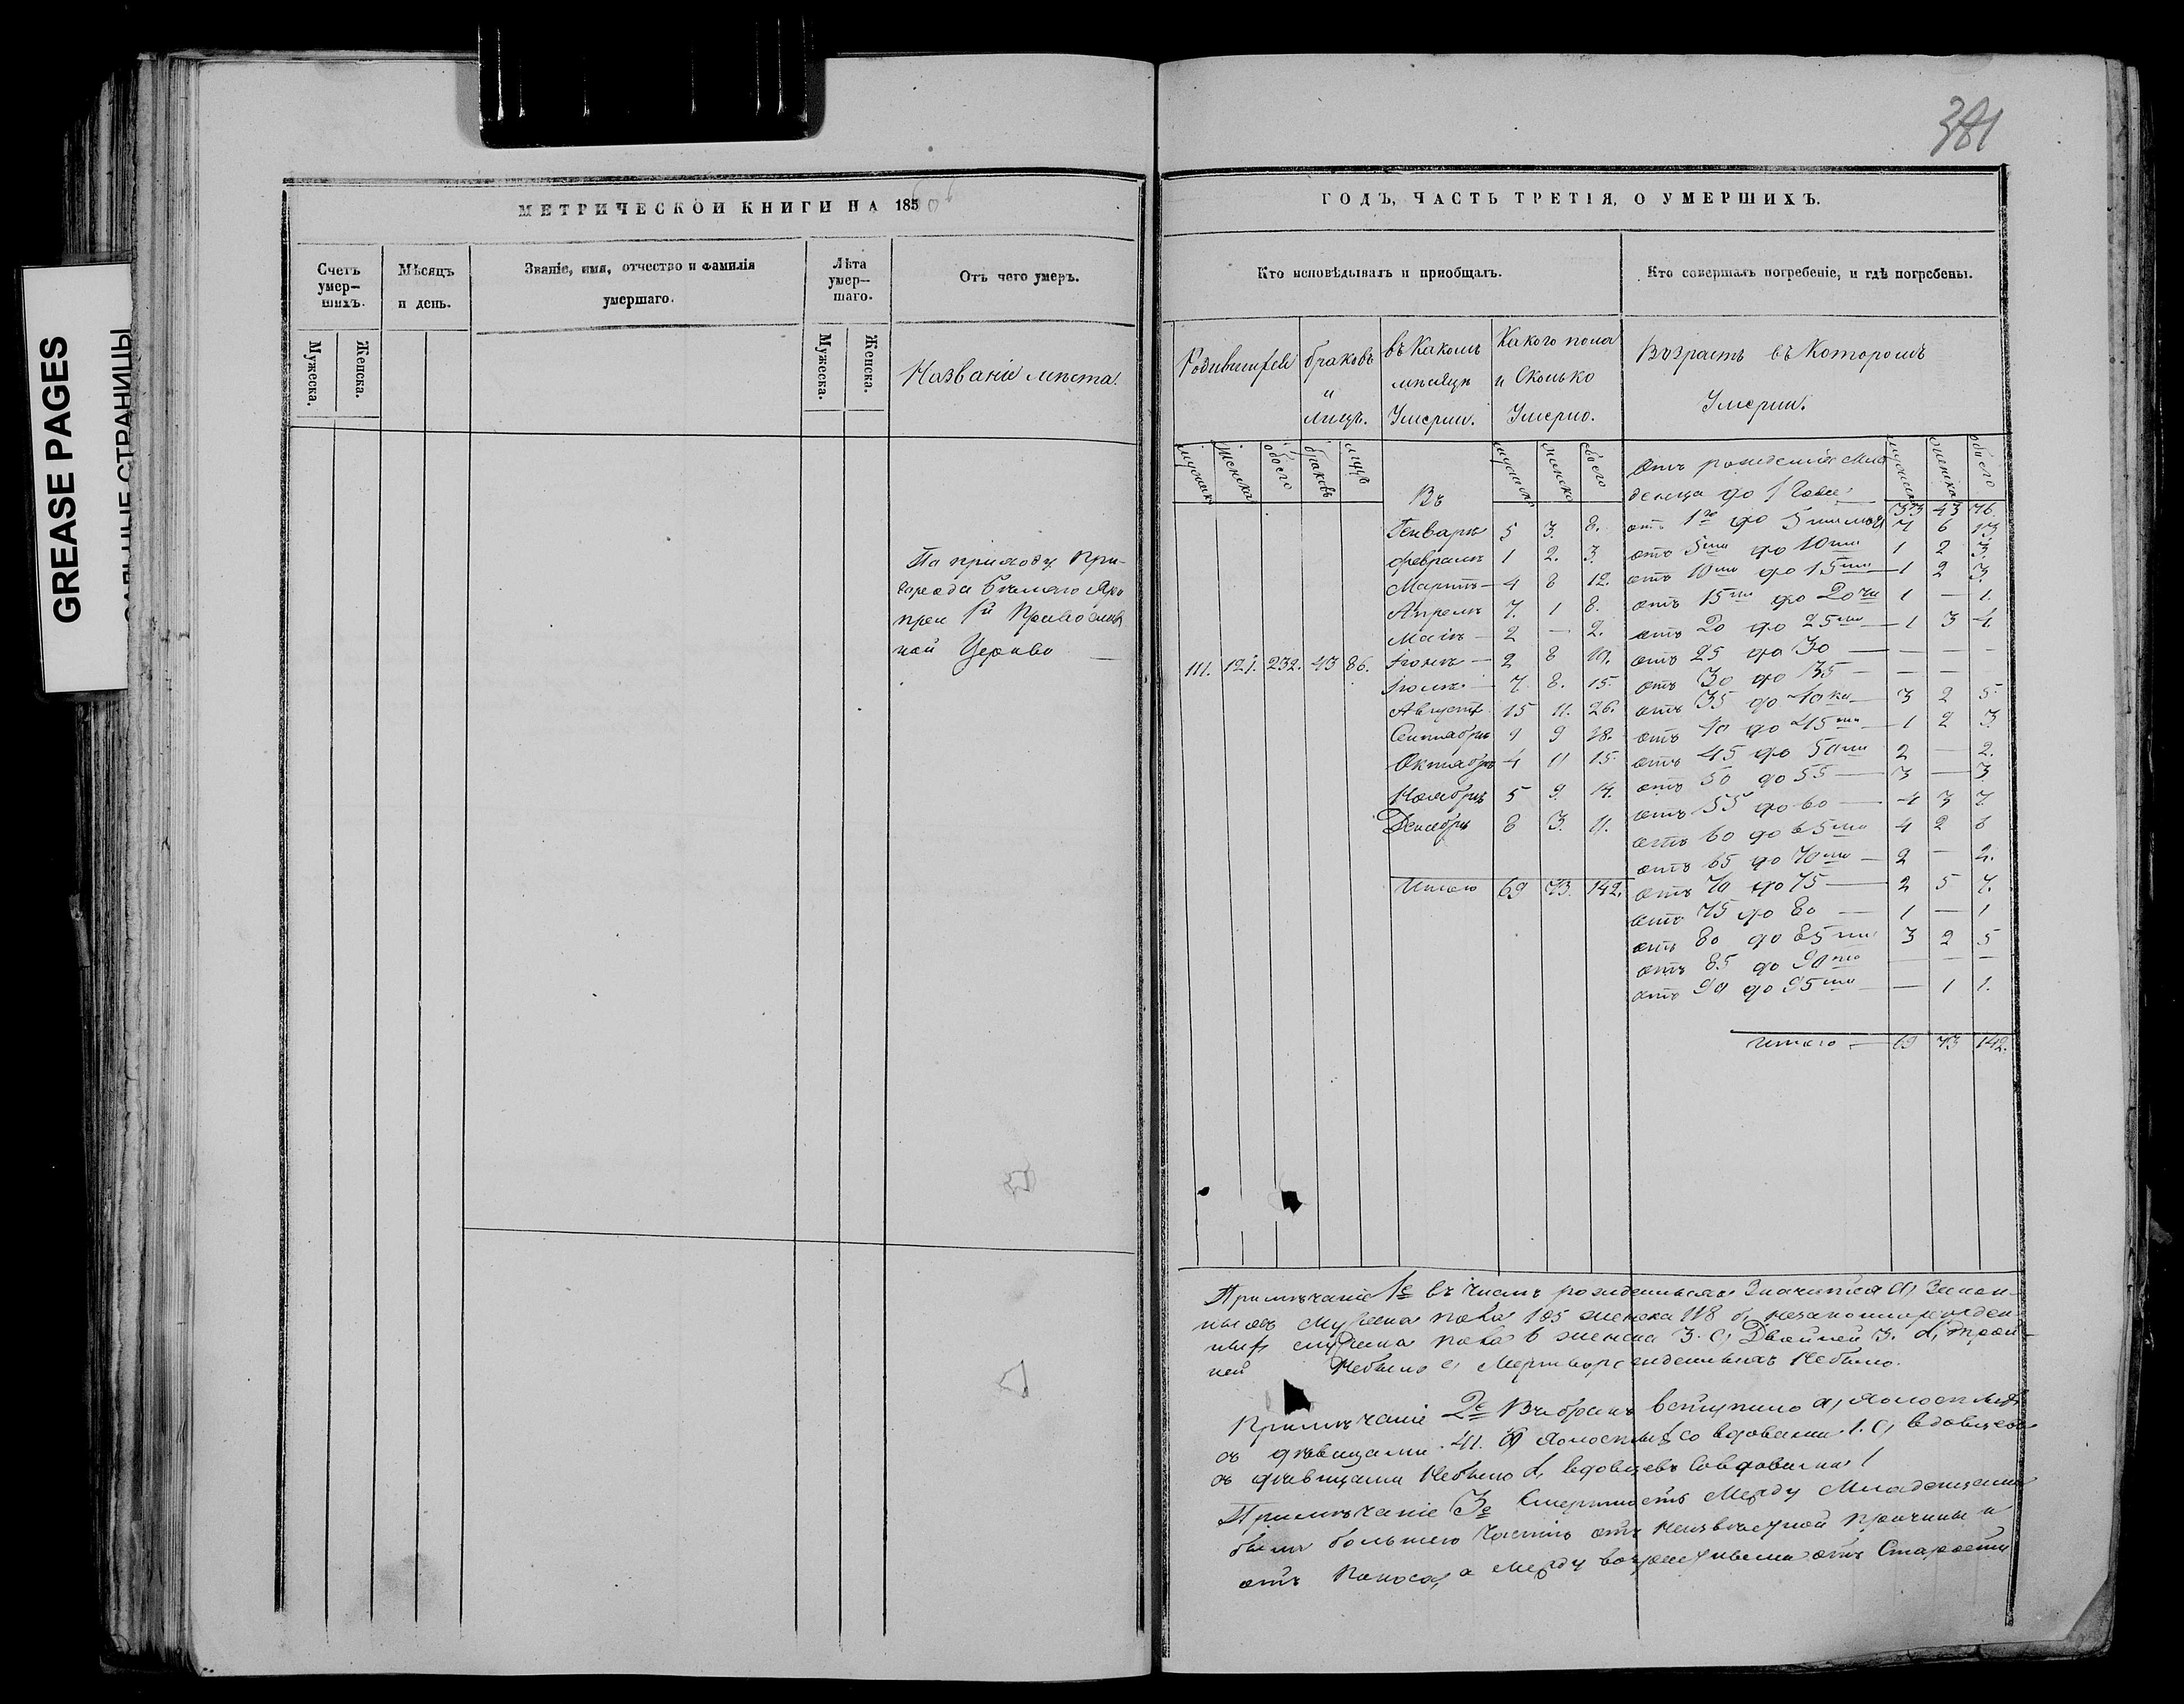 381
GREASE PAGES
САЛЬНЫЕ СТРАНИЦЫ
МЕТРИЧЕСКОЙ КНИГИ НА 1860
Счетъ умер-
шихъ.
Мѣсяцъ
и день.
Званіе, имя, отчество и фамилія
умершаго.
Лѣта
умер-
шаго.
Отъ чего умеръ.
Мужеска.
Женска.
Мужеска.
Женска.
Названіе мѣста.
По приходу при-
города
1й Православ
ной Церкви
ГОДЪ, ЧАСТЬ ТРЕТІЯ, О УМЕРШИХЪ.
Кто исповѣдывалъ и пріобщалъ.
Кто совершалъ погребеніе, и гдѣ погребены.
Родившихся
браковъ
и
лицъ.
въ какомъ
мѣсяцѣ
Умерли.
Какого пола
и Сколько
Умерло.
Возрастъ въ Которомъ
Умерли.
мужеска
женска
обоего
браковъ
лицъ
мужеска
женска
обоего
мужеска
женска
обоего
111. 121. 232. 43 86.
Въ
Генварѣ 5 3. 8.
Февралѣ 1 2. 3.
Мартѣ 4 8 12.
Апрелѣ 7. 1 8.
Маіѣ 2 — 2.
Іюнѣ 2 8 10.
Іюлѣ 7. 8. 15.
Августѣ 15 11. 26.
Сентябрѣ 9 9 18.
Октябрѣ 4 11 15.
Ноябрѣ 5 9. 14.
Декабрѣ 8 3. 11.
Итого 69 73. 142.
отъ рожденія мла
денца до 1 года 33 43 76.
отъ 1го до 5ти лѣтъ 7 6 13.
отъ 5ти до 10ти 1 2 3.
отъ 10ти до 15ти 1 2 3.
отъ 15ти до 20ти 1 — 1.
отъ 20 до 25ти 1 3 4.
отъ 25 до 30 — — —
отъ 30 до 35 — — —
отъ 35 до 40ка 3 2 5
отъ 40 до 45ти 1 2 3.
отъ 45 до 50ти 2 — 2.
отъ 50 до 55 3 — 3
отъ 55 до 60 4 3 7.
отъ 60 до 65ти 4 2 6
отъ 65 до 70ти 2 — 2.
отъ 70 до 75 2 5 7.
отъ 75 до 80 1 — 1
отъ 80 до 85ти 3 2 5
отъ 85 до 90то — — —
отъ 90 до 95ти — 1 1.
Итого 69 73 142.
Примѣчаніе 1е въ числѣ рожденныхъ Значится а, Закон-
ныхъ мужеска пола 105 женска 118 б, незаконнорожден-
ныхъ мужеска пола 6 женска 3. с, Двойней 3. d, трой-
ней Небыло е, Мертворожденныхъ Небыло.
Примѣчаніе 2е Въ бракъ вступило а, холостыхъ
съ дѣвицами 41. б, холостыхъ со вдовами 1. с, вдовцевъ
съ дѣвицами Небыло d, вдовцевъ со вдовами 1
Примѣчаніе 3е Смертность между младенцами
была большею частію отъ неизвѣстной причины и
отъ поноса, а между возрастными отъ Старости